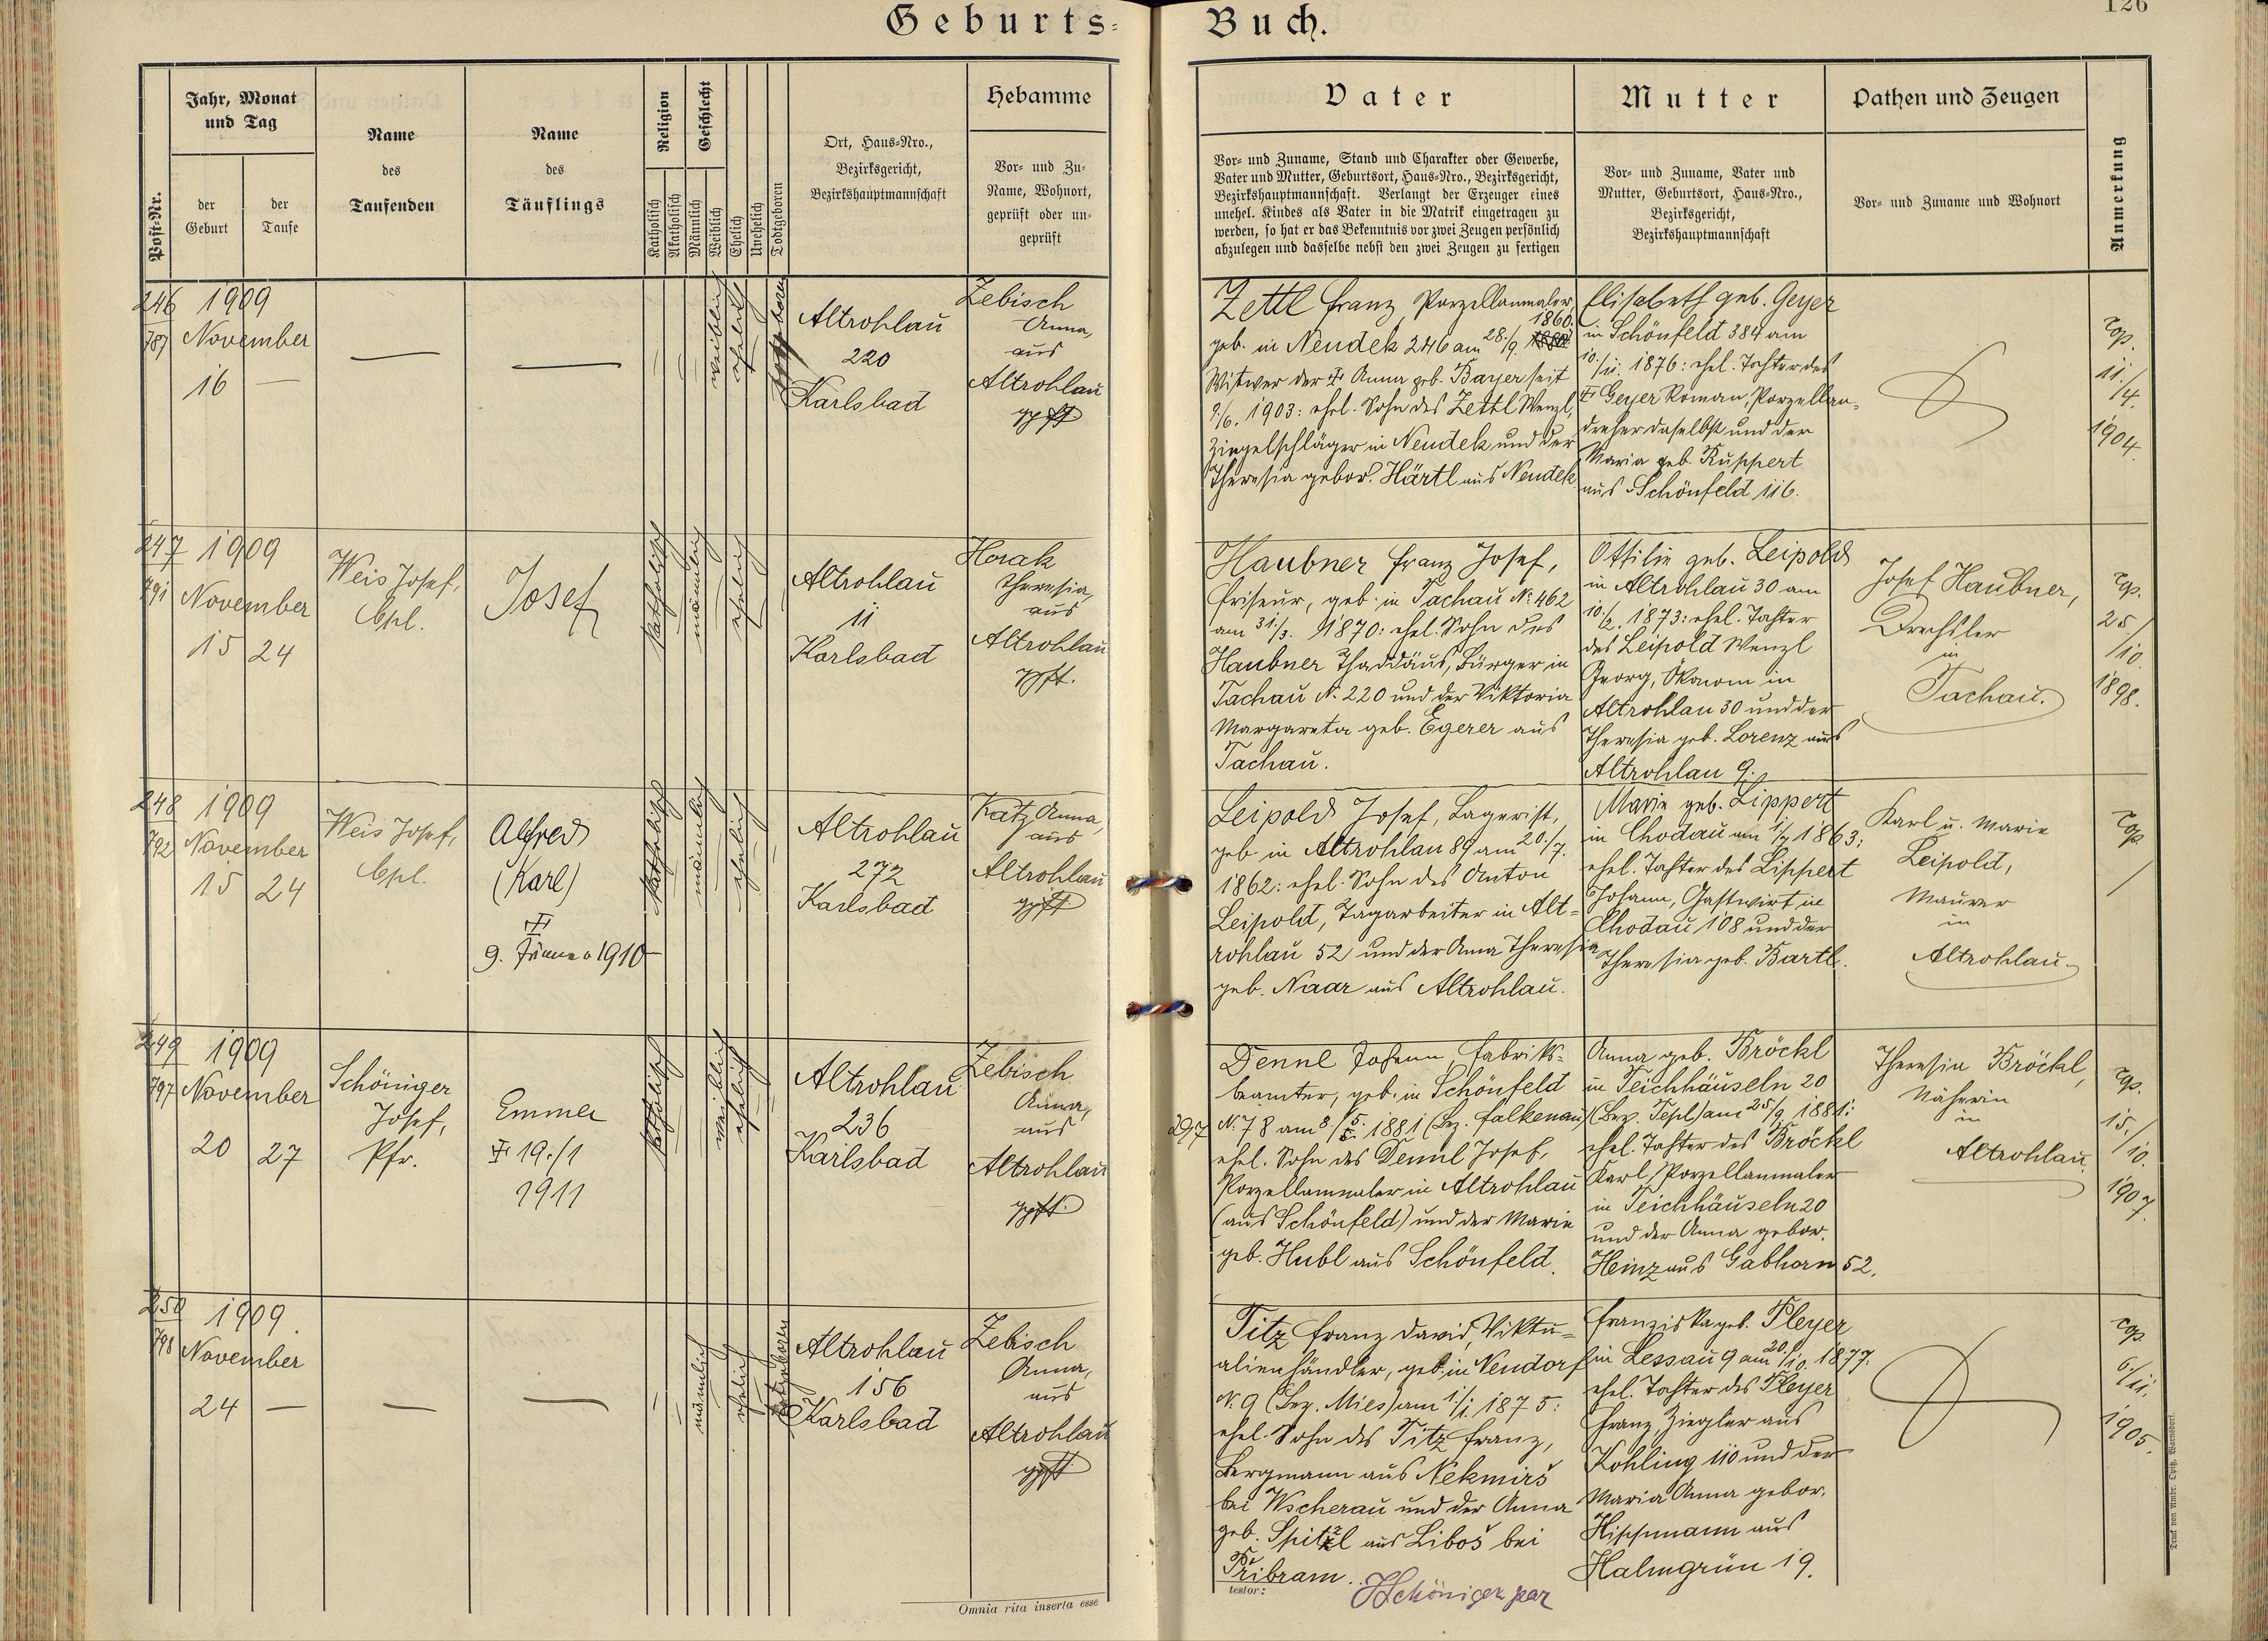 Geburts-
Buch.
126
Post-Nr.
Jahr, Monat
und Tag
der
Geburt
der
Taufe
Name
des
Taufenden
Name
des
Täuflings
Religion
Katholisch
Akatholisch
Geschlecht
Männlich
Weiblich
Ehelich
Unehelich
Todtgeboren
Ort, Haus-Nro.,
Bezirksgericht,
Bezirkshauptmannschaft
Hebamme
Vor- und Zu-
Name, Wohnort,
geprüft oder un-
geprüft
Vater
Vor- und Zuname, Stand und Charakter oder Gewerbe,
Vater und Mutter, Geburtsort, Haus-Nro., Bezirksgericht,
Bezirkshauptmannschaft. Verlangt der Erzeuger eines
unehel. Kindes als Vater in die Matrik eingetragen zu
werden, so hat er das Bekenntnis vor zwei Zeugen persönlich
abzulegen und dasselbe nebst den zwei Zeugen zu fertigen
Mutter
Vor- und Zuname, Vater und
Mutter, Geburtsort, Haus-Nro.,
Bezirksgericht,
Bezirkshauptmannschaft
Pathen und Zeugen
Vor- und Zuname und Wohnort
Anmerkung
246
787
1909
November
16 —
—
—
weiblich
ehelich
todtgeboren
Altrohlau
220
Karlsbad
Zebisch
Anna,
aus
Altrohlau
gpft.
Zettl Franz, Porzellanmaler,
1860.
geb. in Neudek 246 am 28./9.
Witwer der † Anna geb. Bayer seit
9./6. 1903: ehel. Sohn des Zettl Wenzl,
Ziegelschläger in Neudek und der
Theresia gebor. Härtl aus Neudek.
Elisabeth geb. Geyer
in Schönfeld 384 am
10./11. 1876: ehel. Tochter des
† Geyer Roman, Porzellan-
dreher daselbst und der
Maria geb. Ruppert
aus Schönfeld 116.
cop.
11./
/4.
1904.
247
791
1909
November
15 24
Weis Josef,
Cpl.
Josef
katholisch
männlich
ehelich
Altrohlau
11
Karlsbad
Horak
Theresia,
aus
Altrohlau
gpft.
Haubner Franz Josef,
Friseur, geb. in Tachau N. 462
am 31./3. 1870: ehel. Sohn des
Haubner Thaddäus, Bürger in
Tachau N. 220 und der Viktoria
Margareta geb. Egerer aus
Tachau.
Ottilie geb. Leipold
in Altrohlau 30 am
10./2. 1873: ehel. Tochter
des Leipold Wenzl
Georg, Ökonom in
Altrohlau 30 und der
Theresia geb. Lorenz aus
Altrohlau 9.
Josef Haubner,
Drechsler
in
Tachau.
cop.
25/
/10.
1898.
248
792
1909
November
15 24
Weis Josef,
Cpl.
Alfred
(Karl)
†
9. Jänner 1910
katholisch
männlich
ehelich
Altrohlau
272
Karlsbad
Katz Anna,
aus
Altrohlau
gpft.
Leipold Josef, Lagerist,
geb. in Altrohlau 89 am 20./7.
1862: ehel. Sohn des Anton
Leipold, Tagarbeiter in Alt-
rohlau 52 und der Anna Theresia
geb. Naar aus Altrohlau.
Marie geb. Lippert
in Chodau am 1/7 1863:
ehel. Tochter des Lippert
Johann, Gastwirt in
Chodau 108 und der
Theresia geb. Bartl.
Karl u. Marie
Leipold,
Maurer
in
Altrohlau
cop.
/
249
797
1909
November
20 27
Schöniger
Josef,
Pfr.
Emma
† 19./1
1911
katholisch
weiblich
ehelich
Altrohlau
236
Karlsbad
Zebisch
Anna,
aus
Altrohlau
gpft.
297
Dennl Johann, Fabriks-
beamter, geb. in Schönfeld
N. 78 am 8./5. 1881 (Bez. Falkenau)
ehel. Sohn des Dennl Josef,
Porzellanmaler in Altrohlau
(aus Schönfeld) und der Marie
geb. Hubl aus Schönfeld.
Anna geb. Bröckl
in Teichhäuseln 20
(Bez. Tepl) am 25/9 1881:
ehel. Tochter des Bröckl
Karl, Porzellanmaler
in Teichhäuseln 20
und der Anna gebor.
Heinz aus Gabhorn 52.
Theresia Bröckl,
Näherin
in
Altrohlau.
cop.
15./
/10.
1907.
250
798
1909
November
24 —
—
—
männlich
ehelich
todtgeboren
Altrohlau
156
Karlsbad
Zebisch
Anna,
aus
Altrohlau
gpft.
Titz Franz David, Viktu-
alienhändler, geb. in Neudorf
N. 9 (Bez. Mies) am 1/1. 1875:
ehel. Sohn des Titz Franz,
Bergmann aus Nekmirš
bei Wscherau und der Anna
geb. Spitzl aus Liboš bei
Přibram.
Franziska geb. Pleyer
in Lessau 9 am 20./10. 1877.
ehel. Tochter des Pleyer
Franz, Ziegler aus
Kohling 110 und der
Maria Anna gebor.
Hippmann aus
Halmgrün 19.
cop.
6./11.
1905.
Omnia rita inserta esse
testor:
JSchöniger par
Druck von Ambr. Opitz, Warnsdorf.